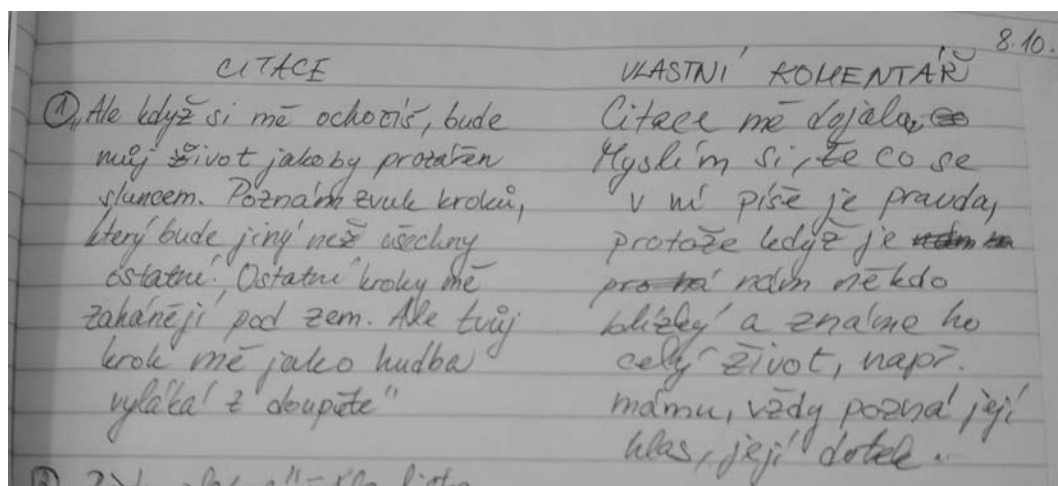 8.10.
CITACE
① „Ale když si mě ochočíš, bude
můj život jakoby prozářen
sluncem. Poznám zvuk kroků,
který bude jiný než všechny
ostatní. Ostatní kroky mě
zahánějí pod zem. Ale tvůj
krok mě jako hudba
vyláká z doupěte"
VLASTNÍ KOMENTÁŘ
Citace mě dojala.
Myslím si, že co se
v ní píše je pravda,
protože když je
nám někdo
blízký a známe ho
celý život, např.
mámu, vždy pozná její
hlas, její dotek.